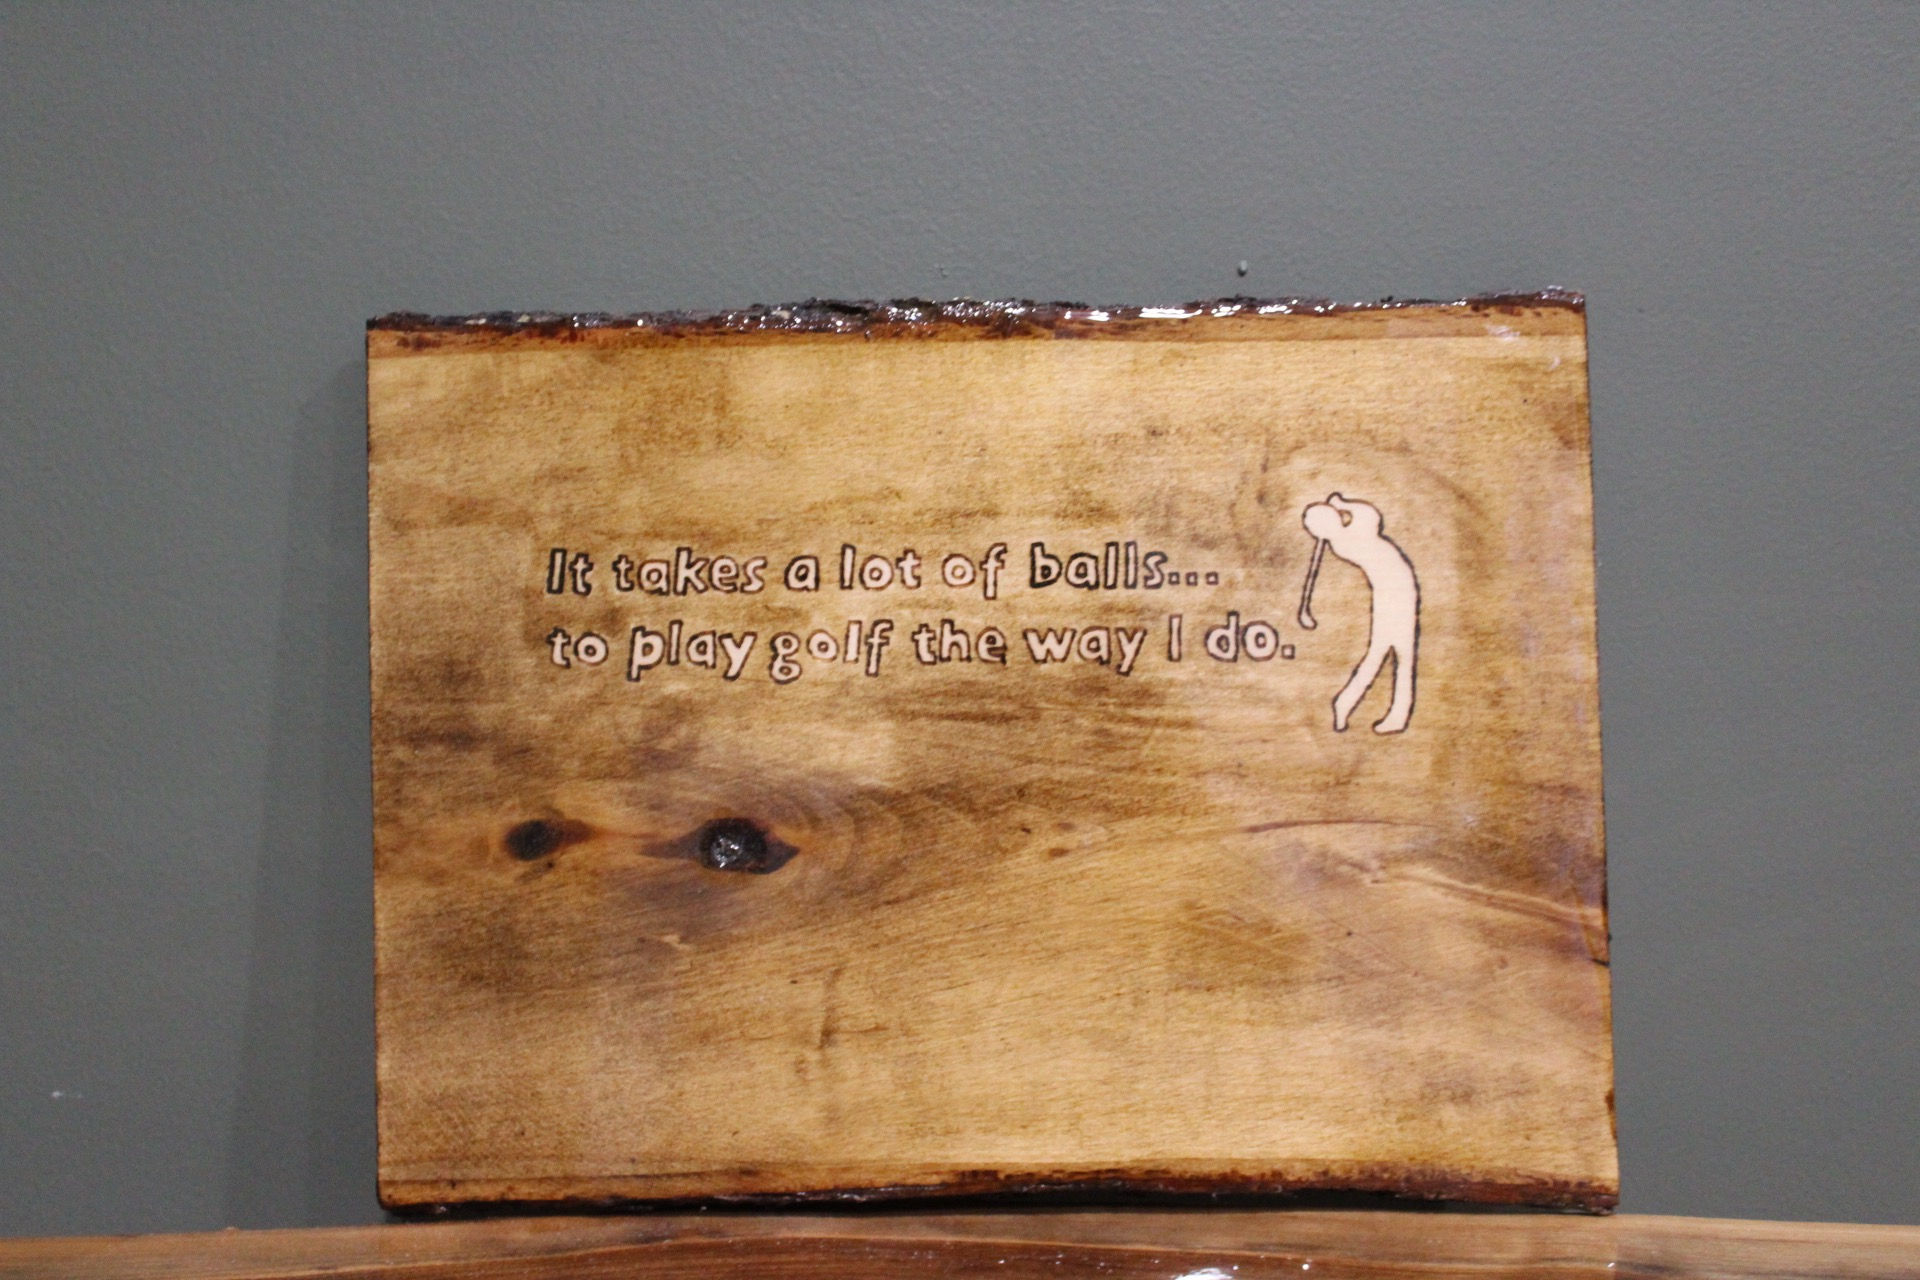 It takes a lot of balls...
to play golf the way I do.